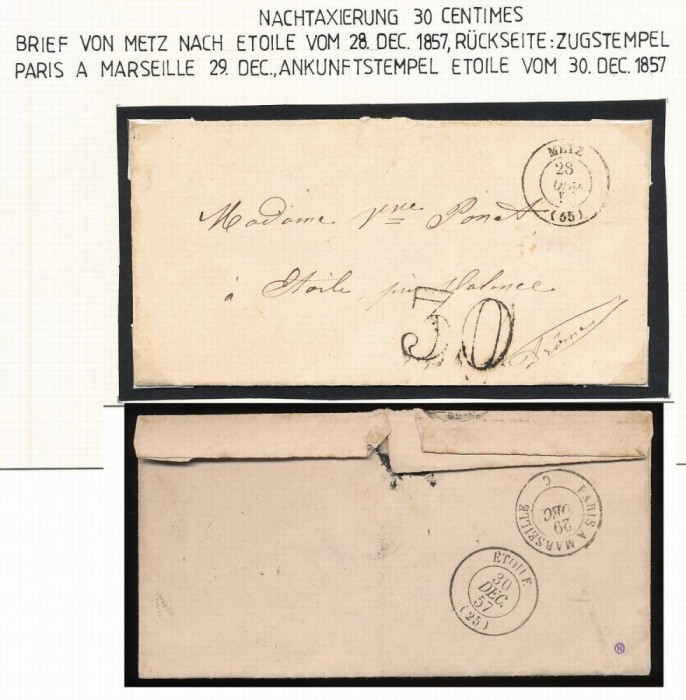 NACHTAXIERUNG 30 CENTIMES
BRIEF VON METZ NACH ETOILE VOM 28. DEC. 1857, RÜCKSEITE: ZUGSTEMPEL
PARIS A MARSEILLE 29. DEC., ANKUNFTSTEMPEL ETOILE VOM 30. DEC. 1857
METZ
28
DEC.
(55)
Madame
à Etoile, près Valence
Drôme
30
PARIS A MARSEILLE
C
29
DEC
ETOILE
30
DEC.
57
(25)
N